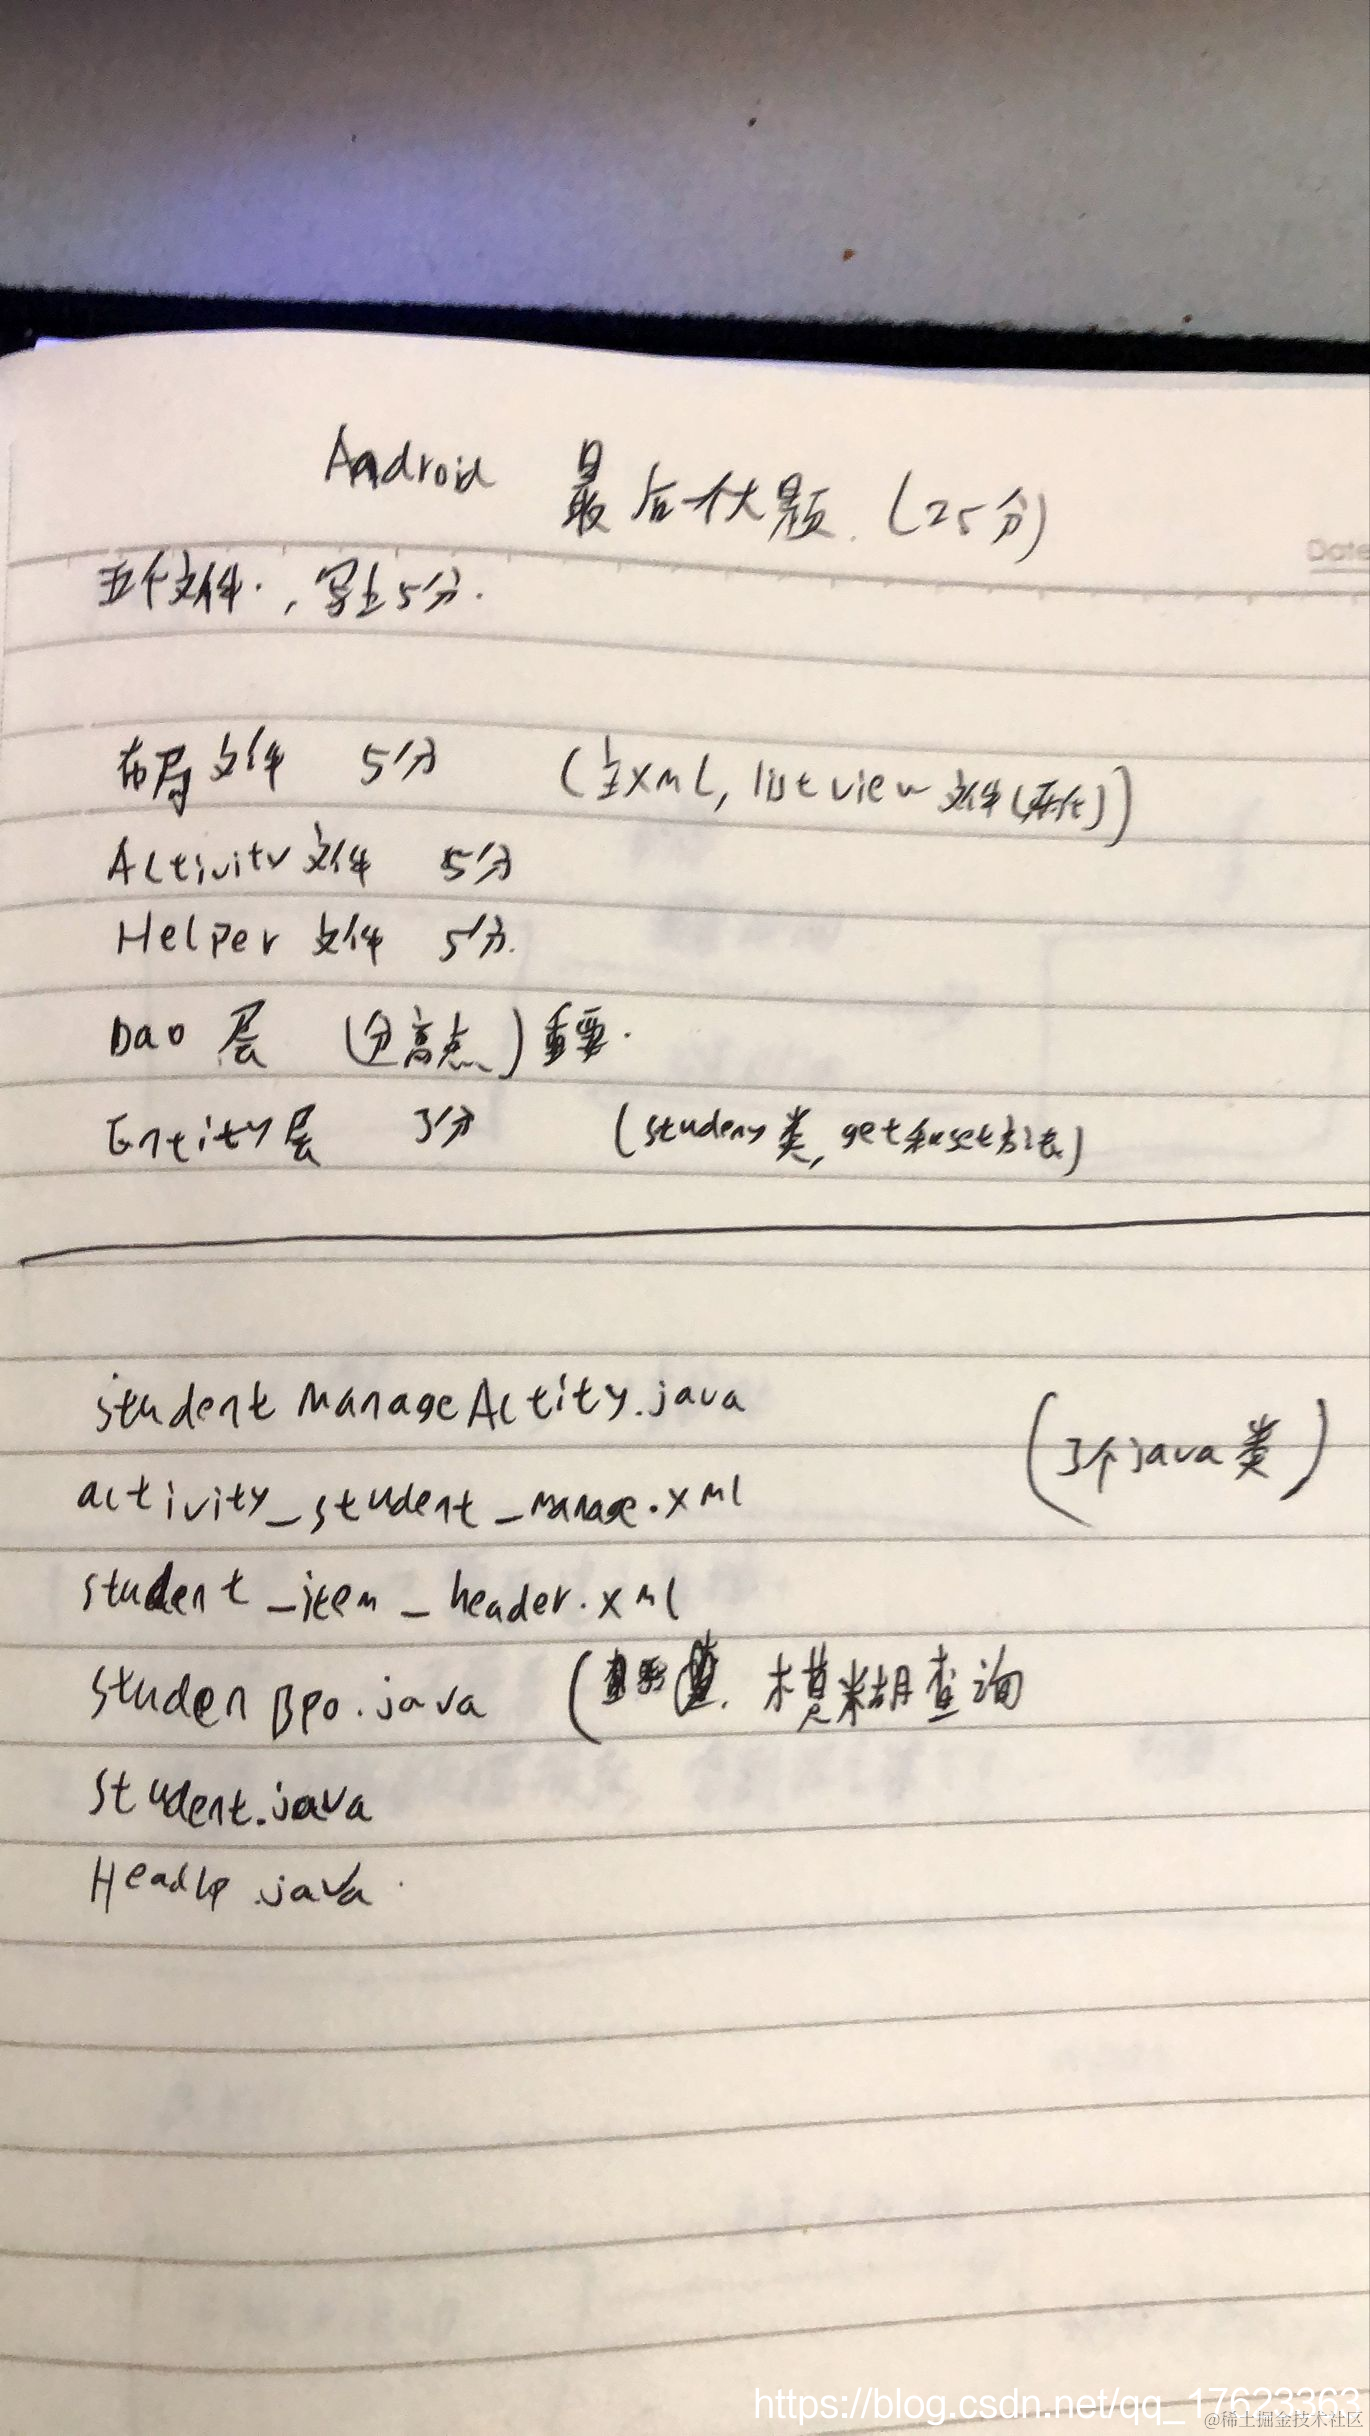 Android 最后一大题.（25分）
Date
五个文件.，写上5分.
布局文件 5分 （主xml, listview文件（ ））
Activity文件 5分
Helper 文件 5分.
Dao 层 （分高点）重要.
Entity层 3分 （student类，get和set方法）
student manageActity.java
（3个java类）
activity_student_manage.xml
student_item_header.xml
studenBpo.java （ 模糊查询
student.java
Headlp.java.
https://blog.csdn.net/qq_17623363
@稀土掘金技术社区